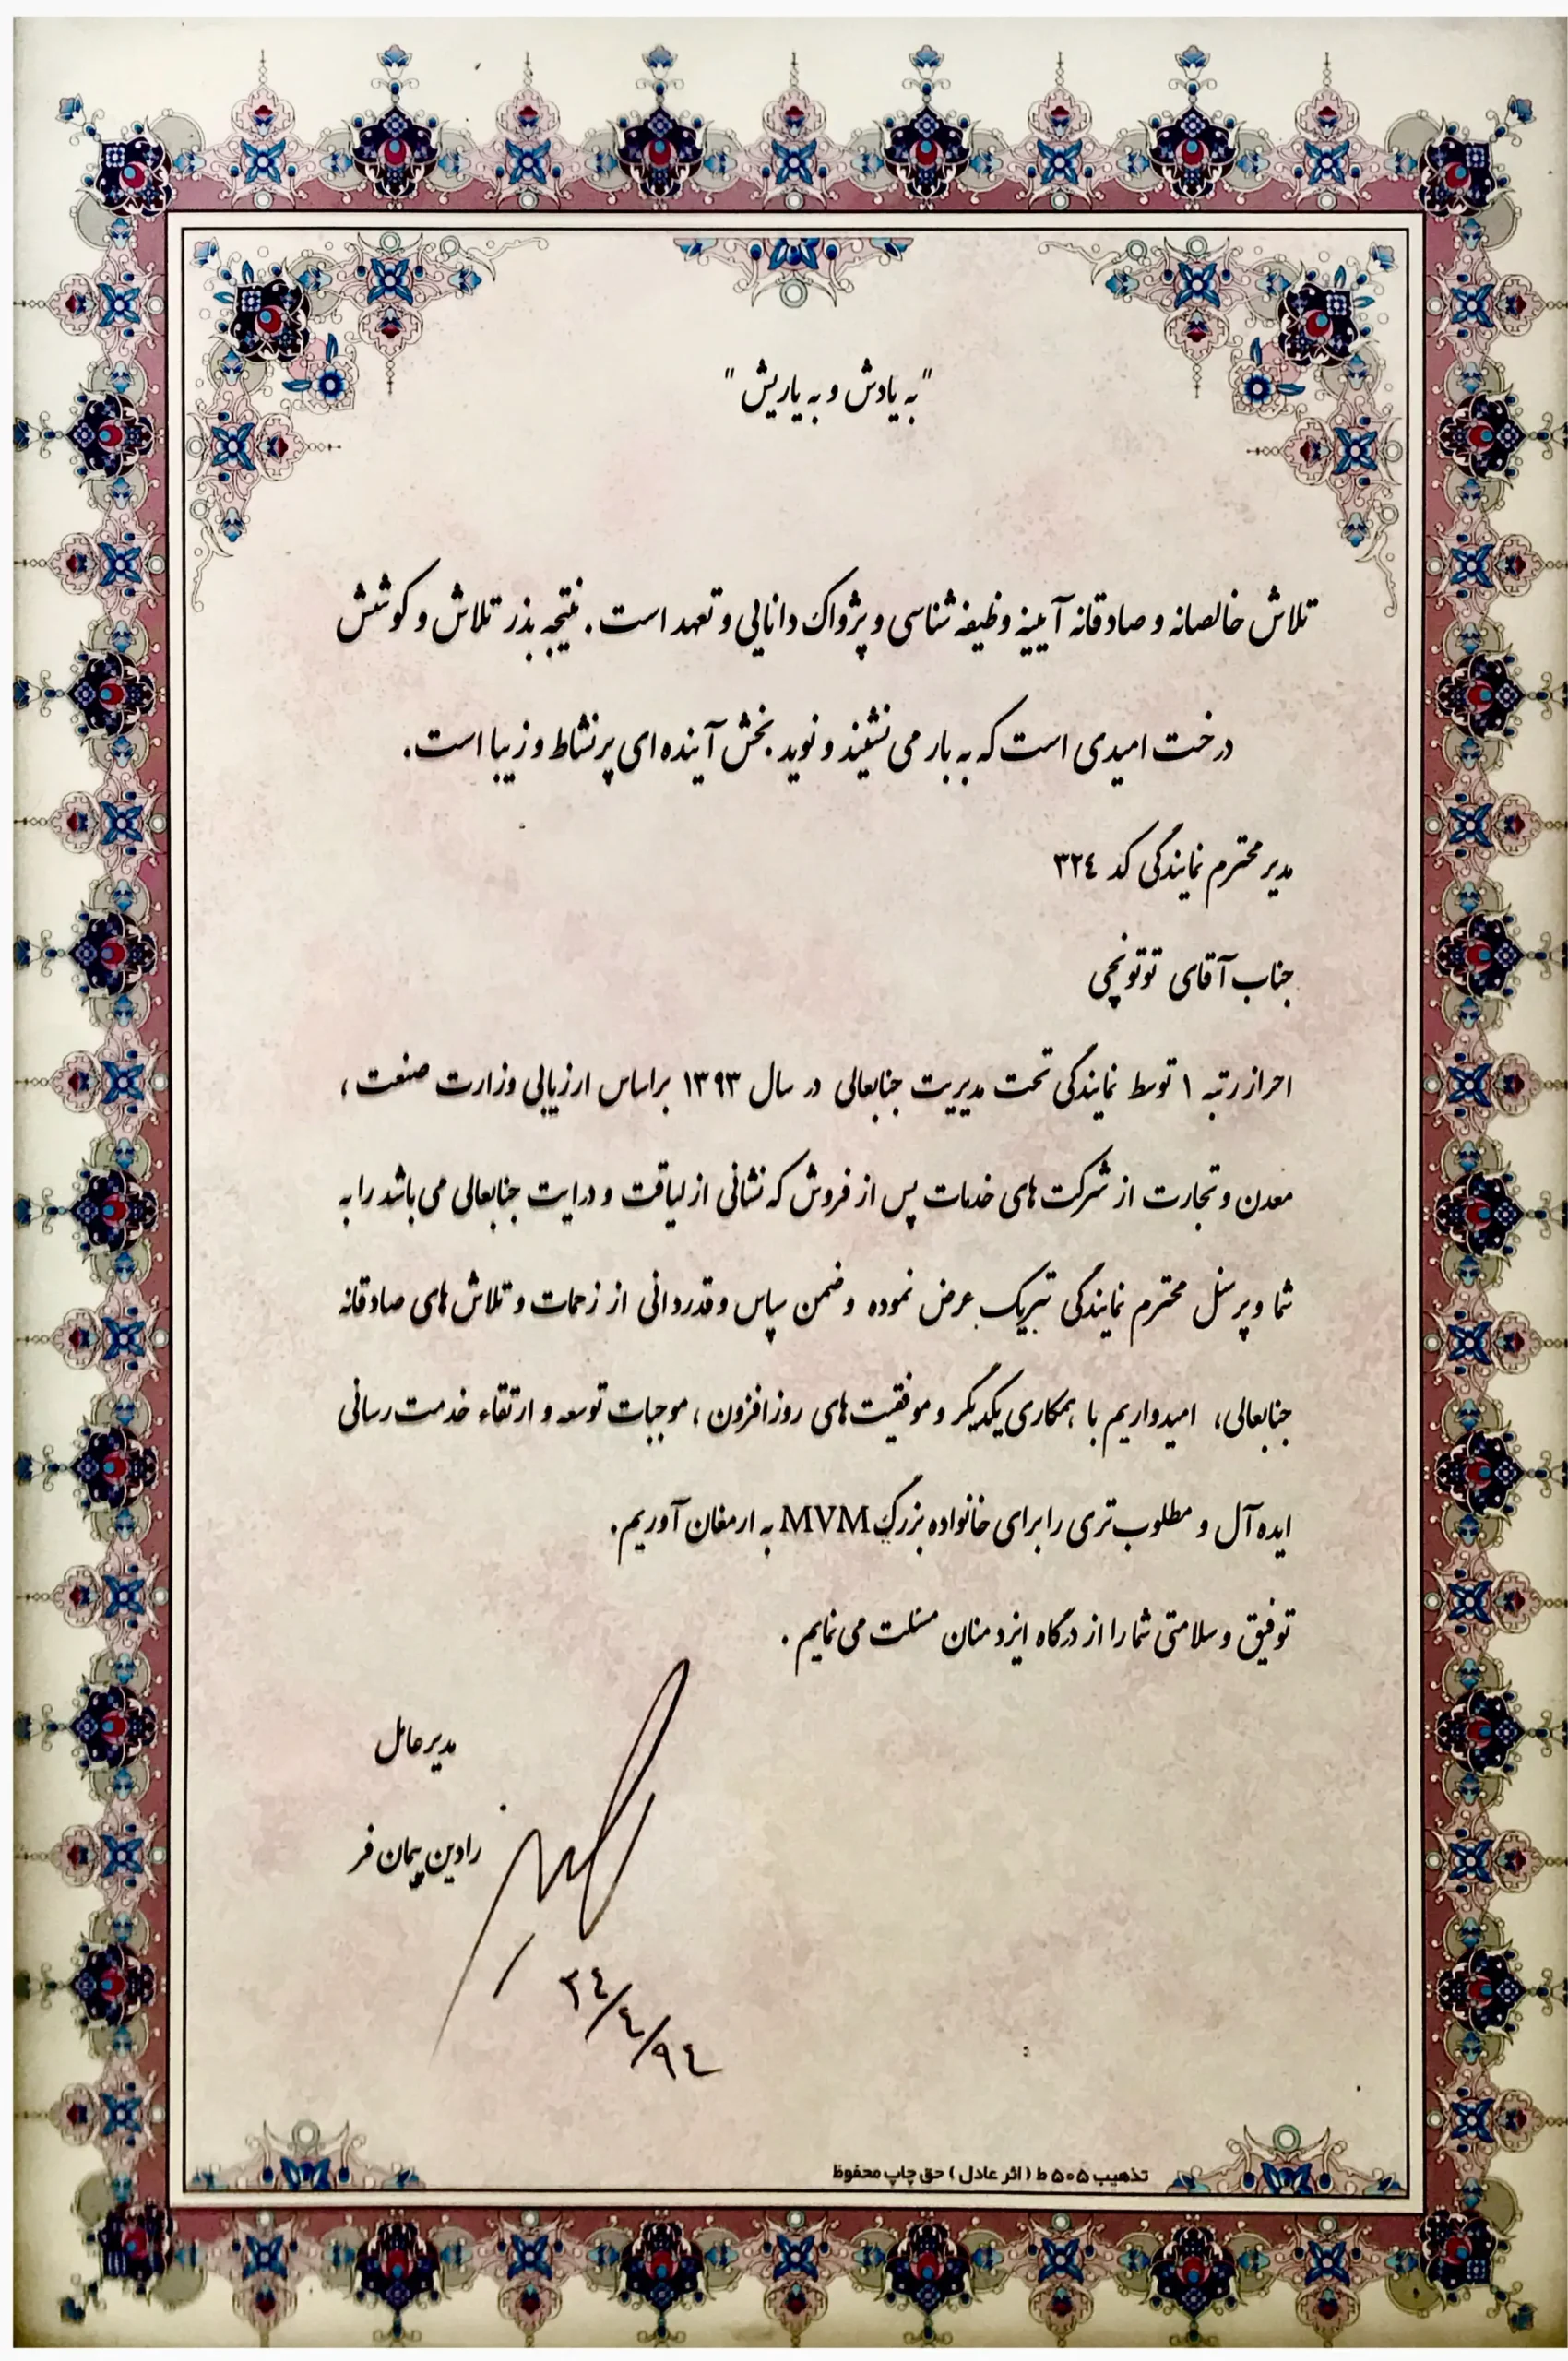 "به یادش و به یاریش"
تلاش خالصانه و صادقانه آیینه وظیفه شناسی و پژواک دانایی و تعهد است. نتیجه بذر تلاش و کوشش
درخت امیدی است که به بار می نشیند و نوید بخش آینده ای پر نشاط و زیبا است.
مدیر محترم نمایندگی کد ۳۲٤
جناب آقای توتونچی
احراز رتبه ۱ توسط نمایندگی تحت مدیریت جنابعالی در سال ۱۳۹۳ براساس ارزیابی وزارت صنعت ،
معدن و تجارت از شرکت های خدمات پس از فروش که نشانی از لیاقت و درایت جنابعالی می باشد را به
شما و پرسنل محترم نمایندگی تبریک عرض نموده و ضمن سپاس و قدردانی از زحمات و تلاش های صادقانه
جنابعالی، امیدواریم با همکاری یکدیگر و موفقیت های روزافزون ، موجبات توسعه و ارتقاء خدمت رسانی
ایده آل و مطلوب تری را برای خانواده بزرگ MVM به ارمغان آوریم.
توفیق و سلامتی شما را از درگاه ایزد منان مسئلت می نمایم .
مدیرعامل
رادین پیمان فر
۲٤/٤/۹٤
تذهیب ۵۰۵ ط (اثر عادل) حق چاپ محفوظ